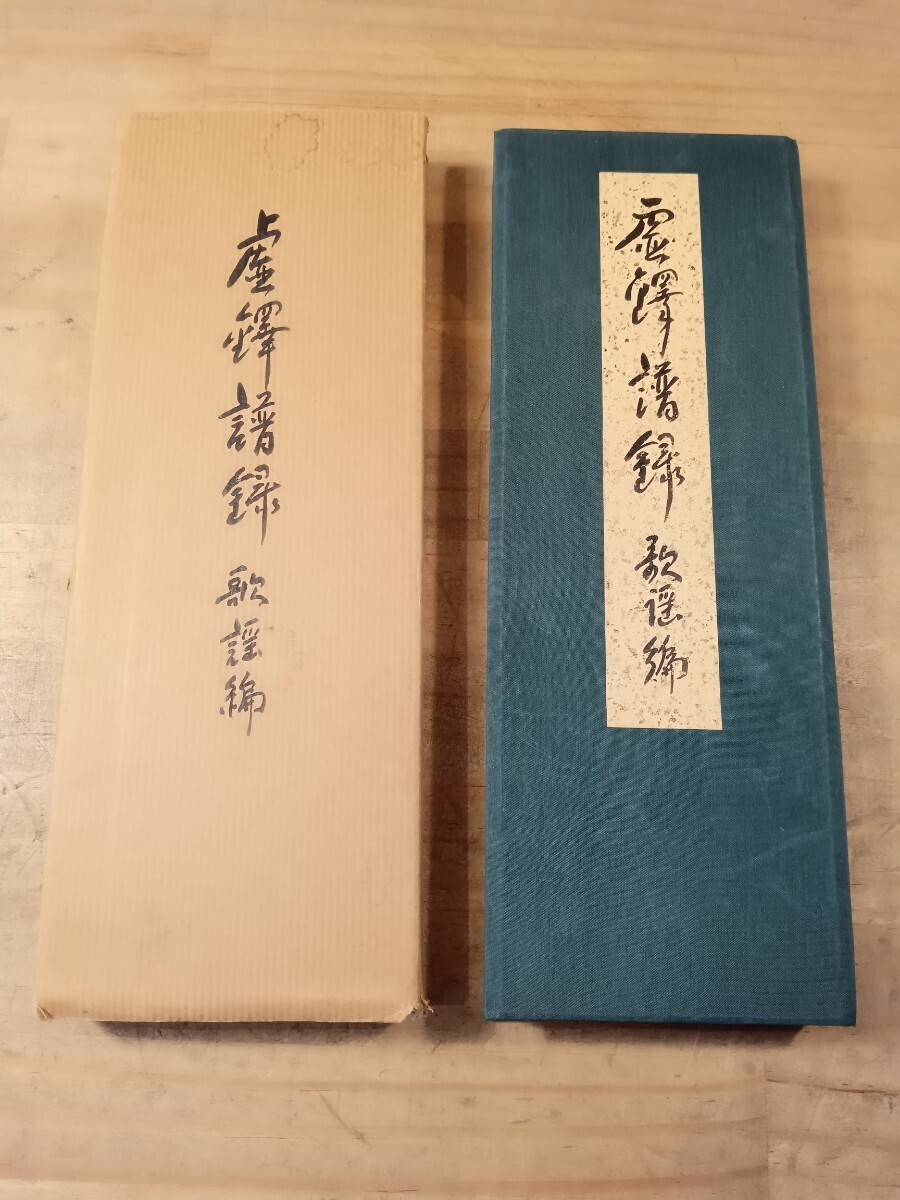 虚鐸譜録 歌謡編
虚鐸譜録 歌謡編